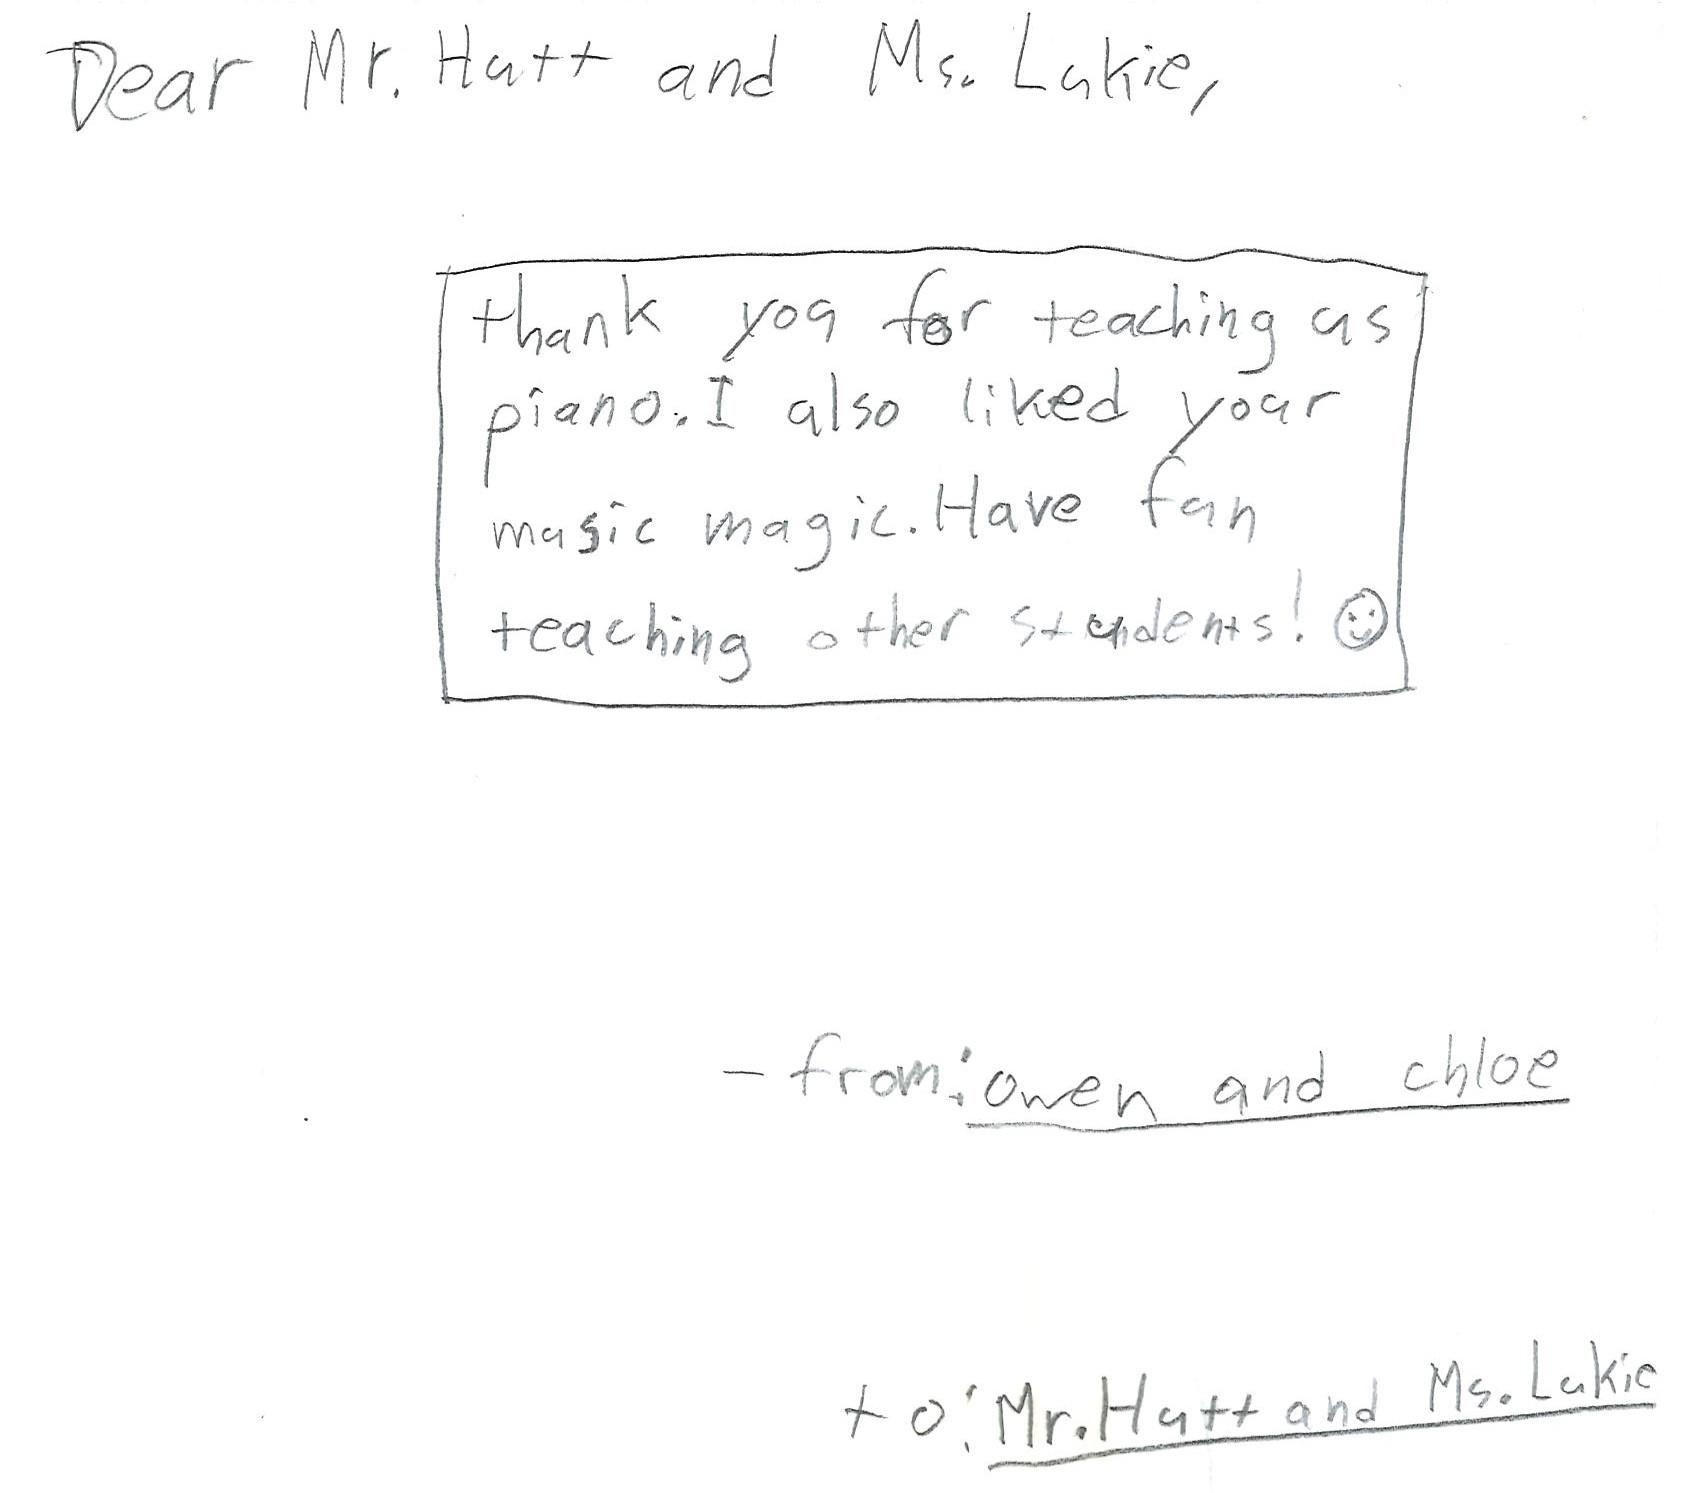 Dear Mr. Hutt and Ms. Lukie,
thank you for teaching us
piano. I also liked your
music magic. Have fun
teaching other students! ☺
- from: owen and chloe
to: Mr. Hutt and Ms. Lukie